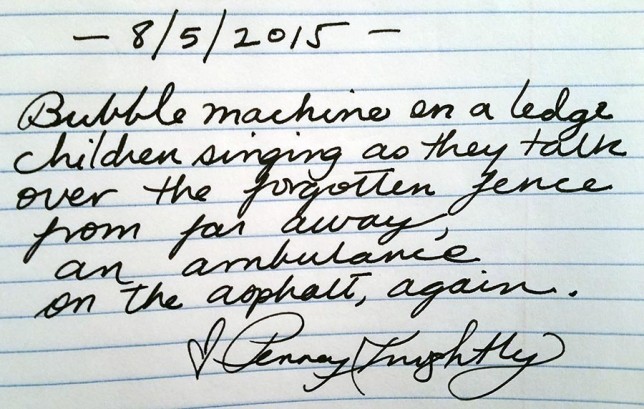 — 8/5/2015 —
Bubble machine on a ledge
children singing as they talk
over the forgotten fence
from far away,
an ambulance
on the asphalt, again.
♡ Penney Knightly